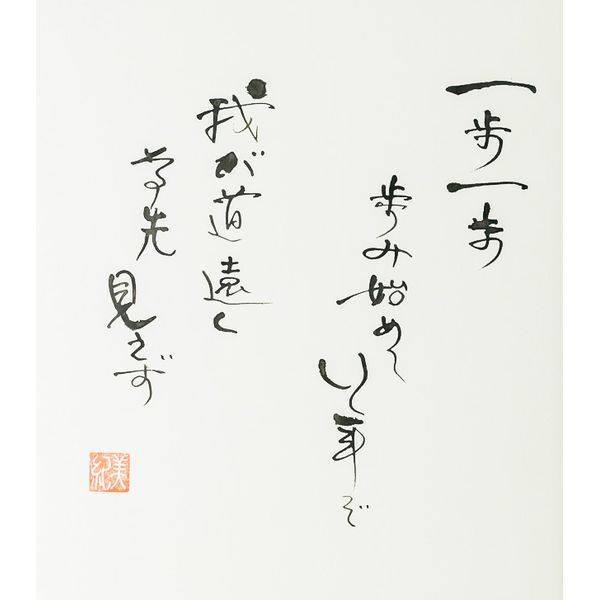 一歩一歩
歩み始めていく年ぞ
我が道遠く
尚先見えず
美紀